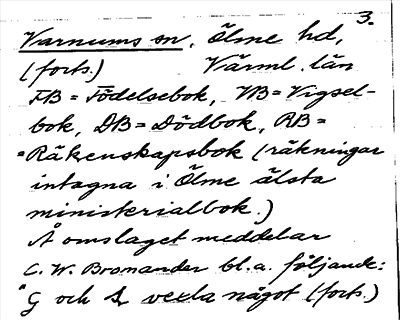 3.
Varnums sn, Ölme hd,
(forts.) Värml. län
FB = Födelsebok, VB = Vigsel-
bok, DB = Dödbok, RB =
= Räkenskapsbok (räkningar
intagna i Ölme älsta
ministerialbok.)
Å omslaget meddelar
C. W. Bromander bl. a. följande:
"G och k vexla något (forts.)